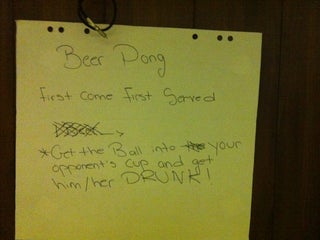 Beer Pong
First come First Served
*Get the Ball into your
opponent's cup and get
him/her DRUNK!